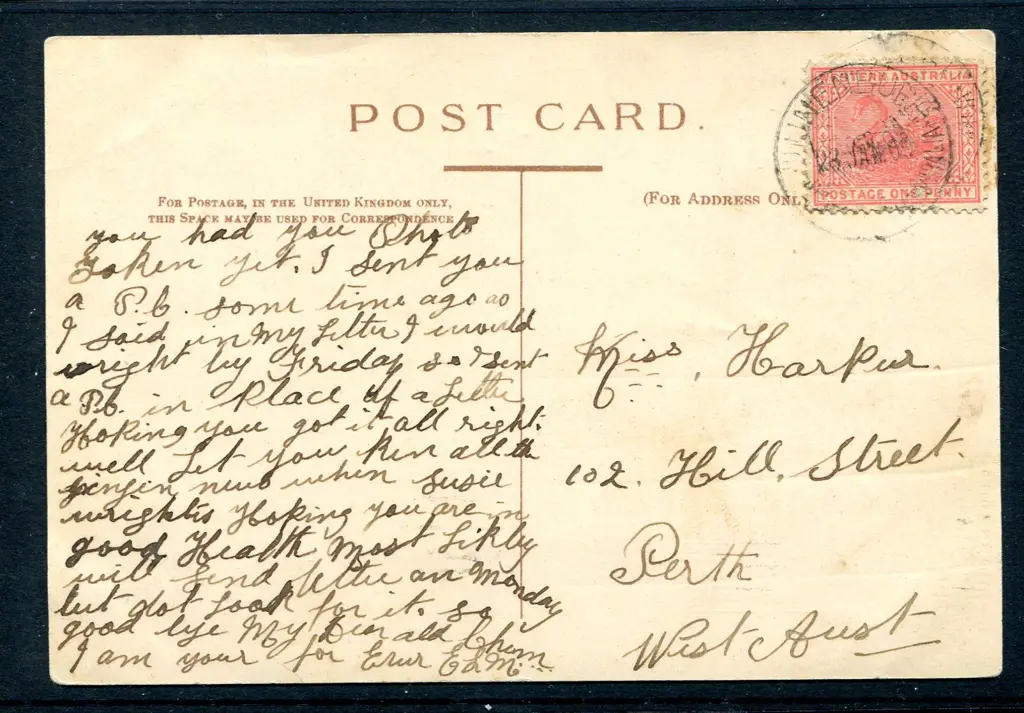 POST CARD.
FOR POSTAGE, IN THE UNITED KINGDOM ONLY,
THIS SPACE MAY BE USED FOR CORRESPONDENCE
(FOR ADDRESS ONLY
WESTERN AUSTRALIA
POSTAGE ONE PENNY
you had you Photo
Token yet. I sent you
a P.C. some time ago ao
I said in my Letter I would
wright by Friday so I sent
a P.C. in Place of a Letter
Hoking you got it all right.
well Let you kin all the
gingin news when Susie
wrights Hoking you are in
good Health Most Likley
will send letter an Monday
but dot Look for it. so
good bye My Dear old Chum
I am your for Ever E.L.M.
Miss, Harper.
102. Hill, Street.
Perth
West Aust